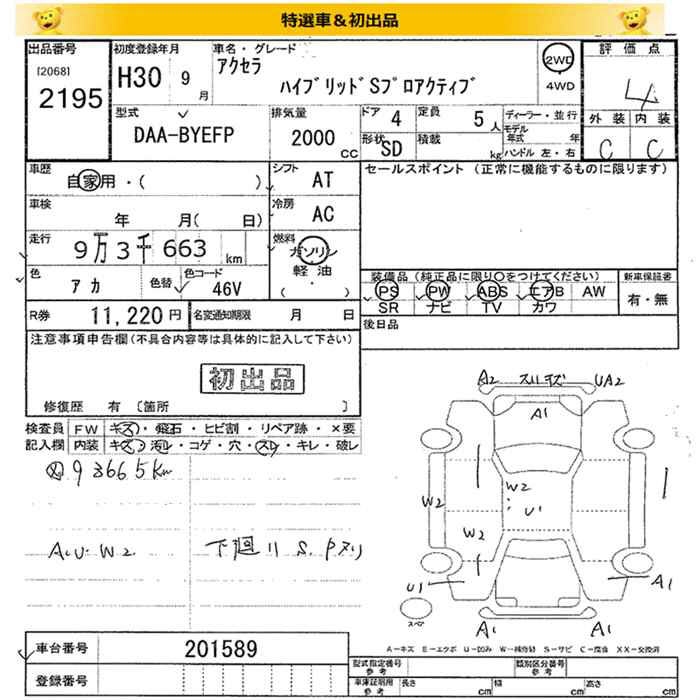 特選車＆初出品
出品番号
[2068]
2195
初度登録年月
H30 9月
車名・グレード
アクセラ
ハイブリッドSプロアクティブ
2WD
4WD
評価点
4
外装 内装
C C
型式
DAA-BYEFP
排気量
2000 CC
ドア 4
形状 SD
定員 5人
積載 kg
ディーラー・並行
モデル年式 年
ハンドル 左・右
車歴
自家用・( )
シフト
AT
セールスポイント (正常に機能するものに限ります)
車検
年 月( 日)
冷房
AC
走行
9万3千663 km
燃料
ガソリン
軽油
( ・ )
色
アカ
色替
色コード
46V
装備品 (純正品に限り○をつけてください)
PS PW ABS エアB AW
SR ナビ TV カワ
新車保証書
有・無
R券 11,220円
名変通知期限 月 日
後日品
注意事項申告欄(不具合内容等は具体的に記入して下さい)
初出品
修復歴 有 〔箇所 〕
検査員記入欄
FW キズ・飛石・ヒビ割・リペア跡・×要
内装 キズ・汚レ・コゲ・穴・スレ・キレ・破レ
93665km
A.U.W2
下廻り S.Pヌリ
A2 スリキズ UA2
A1
W2
U1
W2
W2
U1
A1
A1
A1
スペア
A-キズ E-エクボ U-凹み W-補修跡 S-サビ C-腐食 XX-交換済
車台番号 201589
登録番号
型式指定番号 参考
類別区分番号 参考
車庫証明用 参考
長さ cm 幅 cm 高さ cm